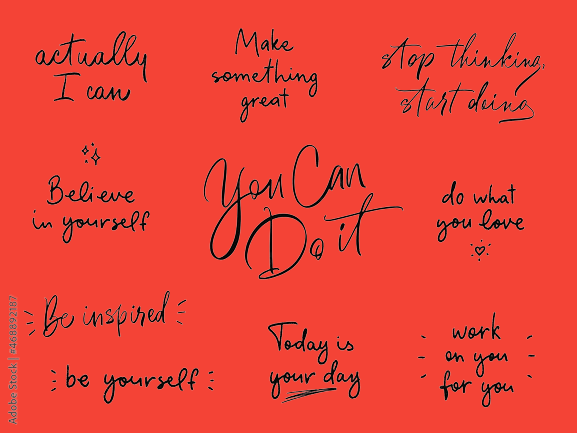 actually
I can
Make
something
great
stop thinking,
start doing
Believe
in yourself
You Can
Do it
do what
you love
Be inspired
be yourself
Today is
your day
work
on you
for you
Adobe Stock | #468892187